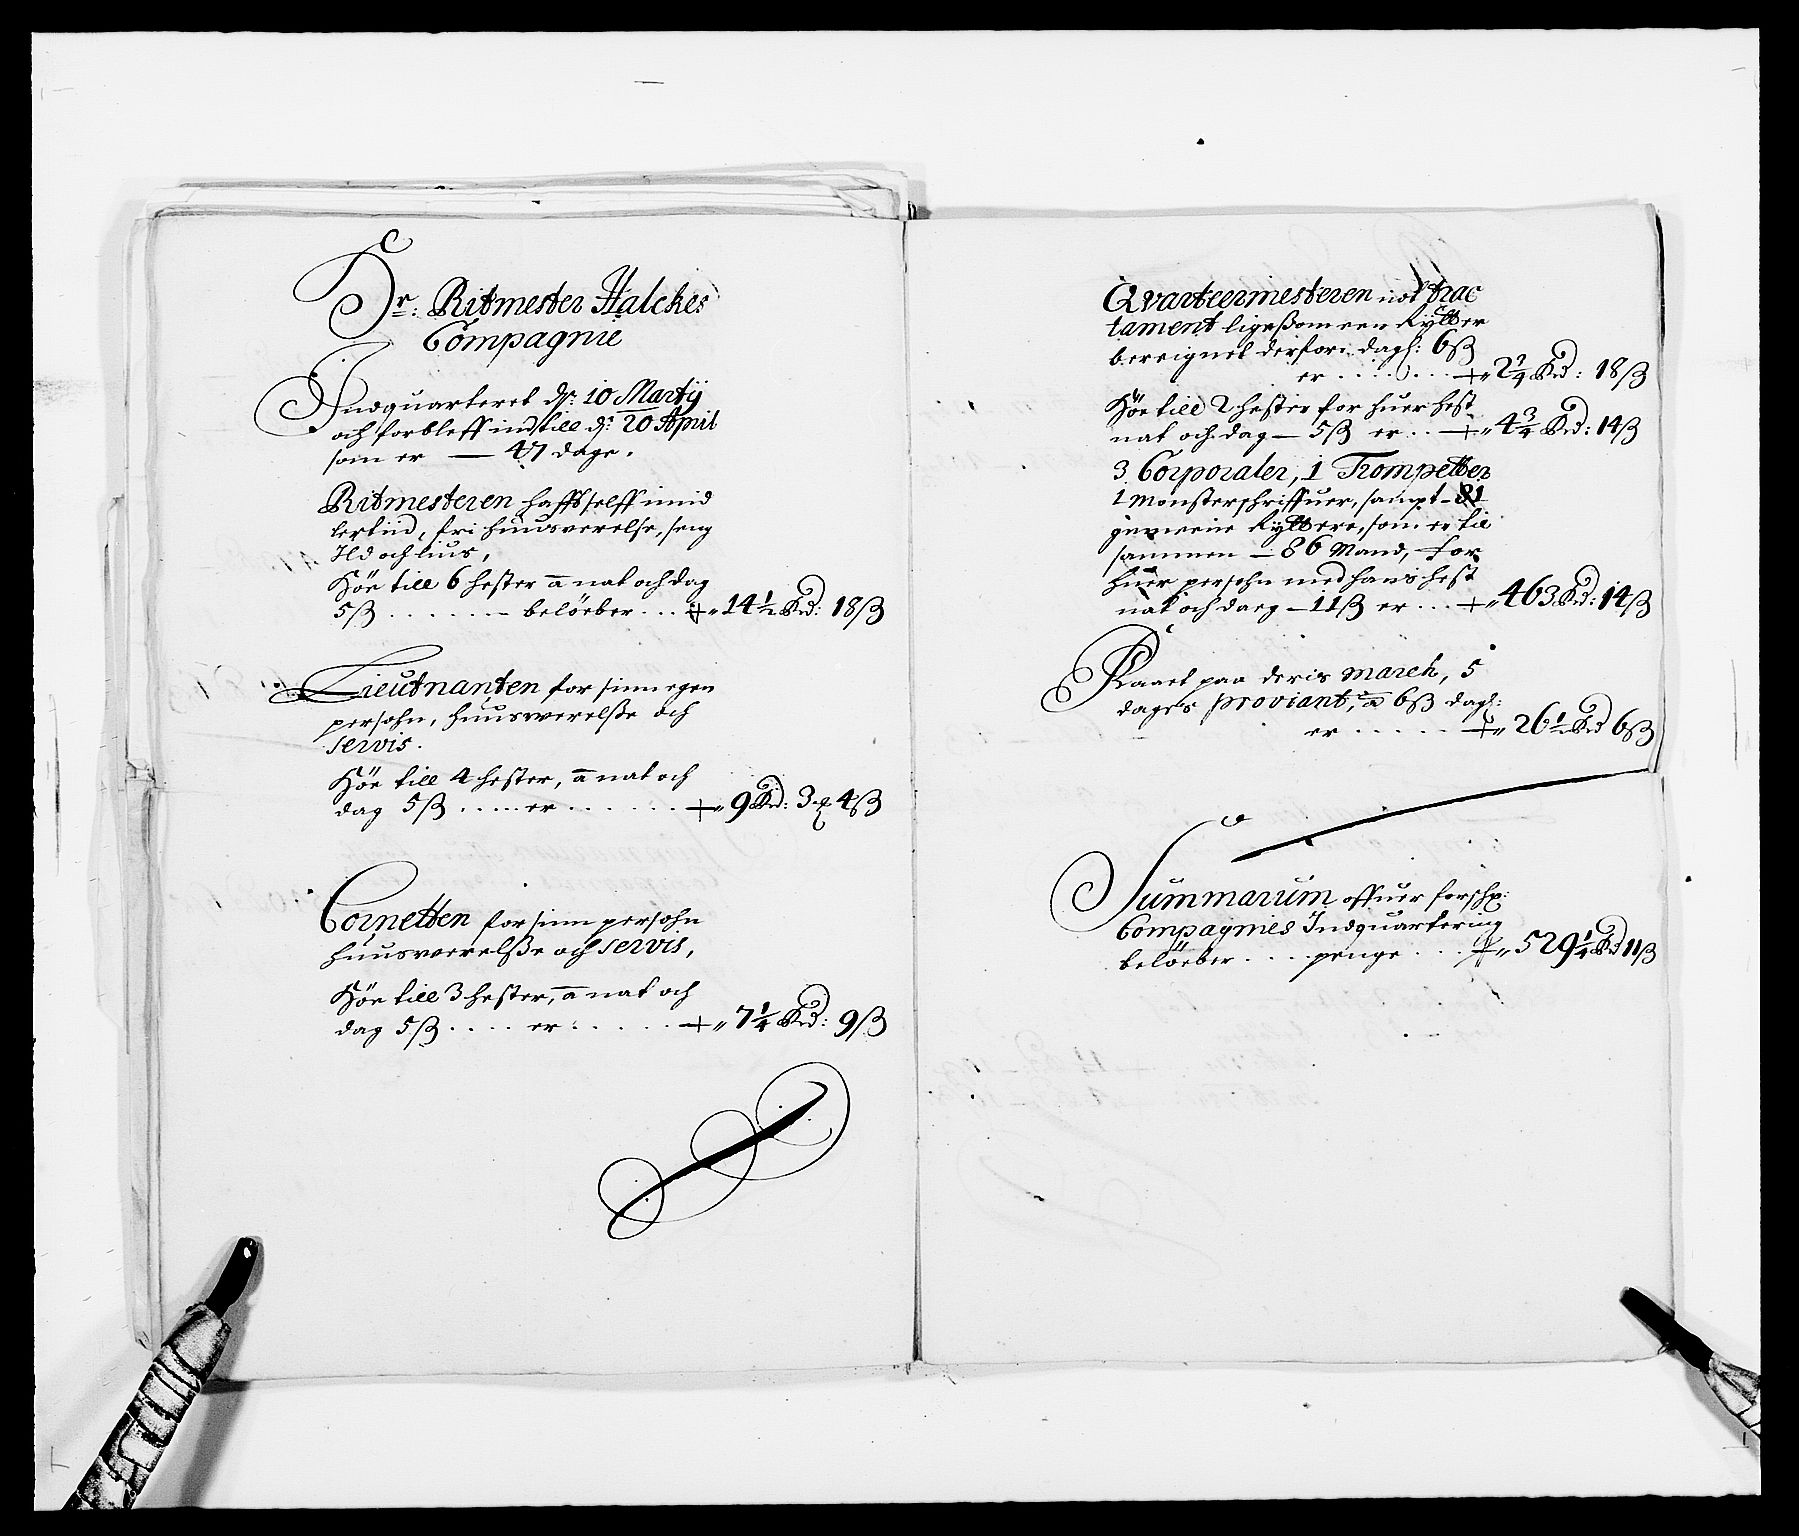 Hr: Ritmester Halckes
Compagnie
Indquarteret dn: 10 Martij
och forbleff indtill dn: 20 April
som er — 47 dage.
Ritmesteren haffd selff imid
lertiid, fri huusverelse, seng
Ild och lius,
Höe till 6 hester a nat och dag
5ß ...... beløeber ... 14½ Rd: 18ß
Lieutnanten for sinn egen
persohn, huusverelße och
servis.
Höe till 4 hester, a nat och
dag 5ß .... er ...... 9 Rd: 3 4ß
Cornetten for sinn persohn
huusverelße och servis,
Höe till 3 hester, a nat och
dag 5ß .... er ..... 7¼ Rd: 9ß
Qvarteermesteren trac
tament ligeßom een Rytter
bereignet derfore dagl: 6ß
er ....... 2¾ Rd: 18ß
Höe till 2 hester for huer hest
nat och dag — 5ß er .. 4¾ Rd: 14ß
3 Corporaler, 1 Trompetter
1 Mønsterschriffuer, sampt — 81
gemeine Ryttere, som er til
sammen — 86 Mand, for
huer persohn med hans hest
nat och dag — 11ß er ... 463 Rd: 14ß
paa deris march, 5
dages proviant, a 6ß dagl:
er ..... 26½ Rd 6ß
Summarum offuer forschr:
Compagnies Indquartering
beløeber .... penge ... 529¼ Rd 11ß